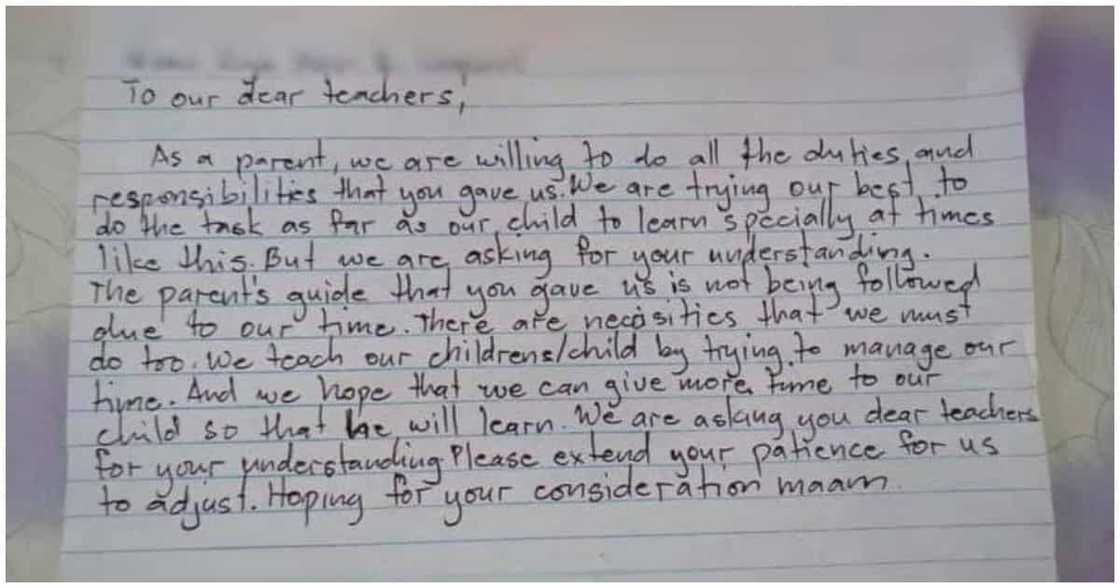 To our dear teachers,
As a parent, we are willing to do all the duties, and
responsibilities that you gave us. We are trying our best to
do the task as far as our child to learn specially at times
like this. But we are asking for your understanding.
The parent's guide that you gave us is not being followed
due to our time. There are necősities that we must
do too. We teach our childrens/child by trying to manage our
time. And we hope that we can give more time to our
child so that he will learn. We are asking you dear teachers
for your understanding Please extend your patience for us
to adjust. Hoping for your consideration maam.